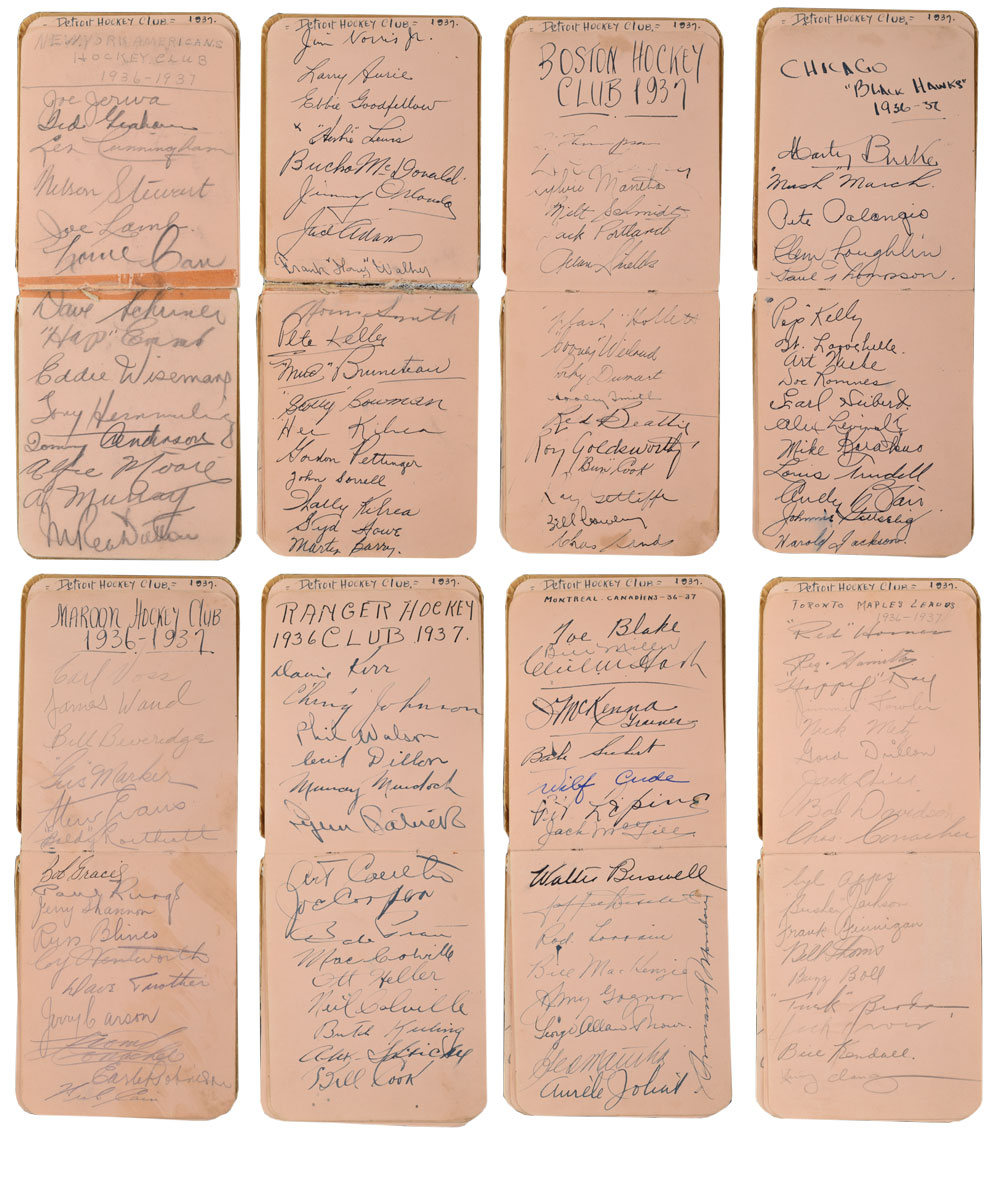 DETROIT HOCKEY CLUB = 1937.
NEW YORK AMERICANS
HOCKEY CLUB
1936-1937
Joe Jerwa
Ted Graham
Len Cunningham
Nelson Stewart
Joe Lamb
Lorne Carr
Dave Schriner
"Hap" Emms
Eddie Wiseman
Tony Hemmerling
Tommy Anderson
Alfie Moore
Al Murray
M Red Dutton
DETROIT HOCKEY CLUB = 1937.
Jim Norris Jr.
Larry Aurie
Ebbie Goodfellow
x "Herbie" Lewis
Bucko McDonald.
Jimmy Orlando
Jack Adams
Frank "Honey" Walker
Norm Smith
Pete Kelly
"Mud" Bruneteau
"Scotty" Bowman
Hec Kilrea
Gordon Pettinger
John Sorrell
Wally Kilrea
Syd Howe
Martin Barry.
DETROIT HOCKEY CLUB = 1937.
BOSTON HOCKEY
CLUB 1937
Thompson
Sylvio Mantha
Milt Schmidt
Jack Portland
Allan Shields
"Flash" Hollett
"Cooney" Weiland
Porky Dumart
Hooley Smith
Red Beattie
Roy Goldsworthy
"Bun" Cook
Ray Getliffe
Bill Cowley
Chas Sands
DETROIT HOCKEY CLUB = 1937.
CHICAGO
"BLACK HAWKS"
1936-37
Marty Burke
"Mush" March.
Pete Palangio
Clem Loughlin
Paul Thompson.
Pep Kelly
Wt. Larochelle.
Art Wiebe
Doc Romnes
Earl Seibert.
Alex Levinsky
Mike Karakas
Louis Trudell
Andy Blair
Johnnie Gottselig
Harold Jackson.
DETROIT HOCKEY CLUB = 1937.
MAROON HOCKEY CLUB
1936-1937
Carl Voss
James Ward
Bill Beveridge
Gus Marker
Stew Evans
"Baldy" Northcott
Bob Gracie
Paul Runge
Jerry Shannon
Russ Blinco
Cy Wentworth
Dave Trottier
Jerry Carson
Earl Robinson
Herb Cain
DETROIT HOCKEY CLUB = 1937.
RANGER HOCKEY
1936 CLUB 1937.
Davie Kerr
"Ching" Johnson
Phil Watson
Cecil Dillon
Murray Murdoch
Lynn Patrick
Art Coulter
Joe Cooper
Babe Pratt
Mac Colville
Ott Heller
Neil Colville
Butch Keeling
Alex Shibicky
Bill Cook
DETROIT HOCKEY CLUB = 1937.
MONTREAL CANADIENS-36-37
Toe Blake
Bill Miller
Cecil M Hart
J McKenna
Trainer
Babe Siebert
Wilf Cude
Pit Lepine
Jack McGill
Walter Buswell
Rod Lorrain
Bill MacKenzie
Johnny Gagnon
George Allan Brown.
Geo Mantha
Aurele Joliat.
Armand Mondou
DETROIT HOCKEY CLUB = 1937.
TORONTO MAPLE LEAFS
1936-1937
"Red" Horner
Reg. Hamilton
"Happy" Day
Jimmie Fowler
Nick Metz
Gord Drillon
Jack Shill
Bob Davidson
Chas. Conacher
Syl Apps
Busher Jackson
Frank Finnigan
Bill Thoms
Buzz Boll
"Turk" Broda
Bill Kendall.
King Clancy